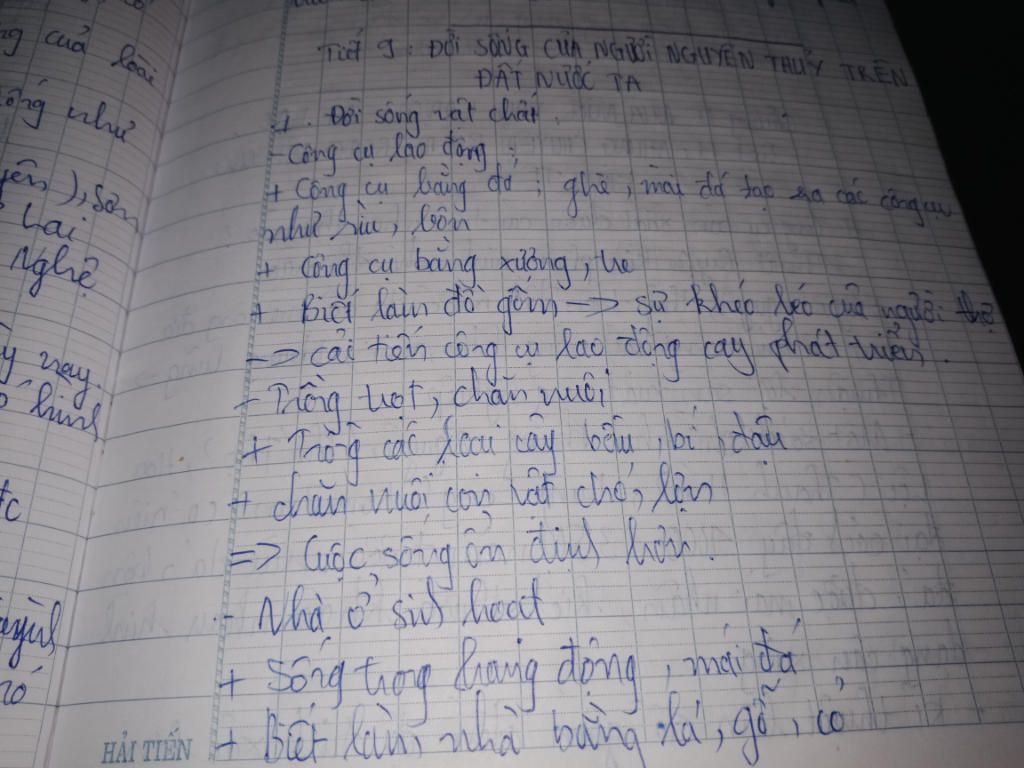 ng của loài
ống như
yên), Sơn
Lai
Nghệ
y nay.
hình
tc
TIẾT 9: ĐỜI SỐNG CỦA NGƯỜI NGUYÊN THỦY TRÊN
ĐẤT NƯỚC TA
1. Đời sống vật chất.
- Công cụ lao động:
+ Công cụ bằng đá: ghè, mài đá tạo ra các công cụ
như rìu, bôn
+ Công cụ bằng xương, tre
+ Biết làm đồ gốm → sự khéo léo của người thợ
-> cải tiến công cụ lao động cay phát triển.
- Trồng trọt, chăn nuôi
+ Trồng các loại cây bầu, bí, đậu
+ chăn nuôi con vật chó, lợn
=> Cuộc sống ổn định hơn.
- Nhà ở sinh hoạt
+ Sống trong hang động, mái đá
+ Biết làm nhà bằng lá, gỗ, cỏ
HẢI TIẾN